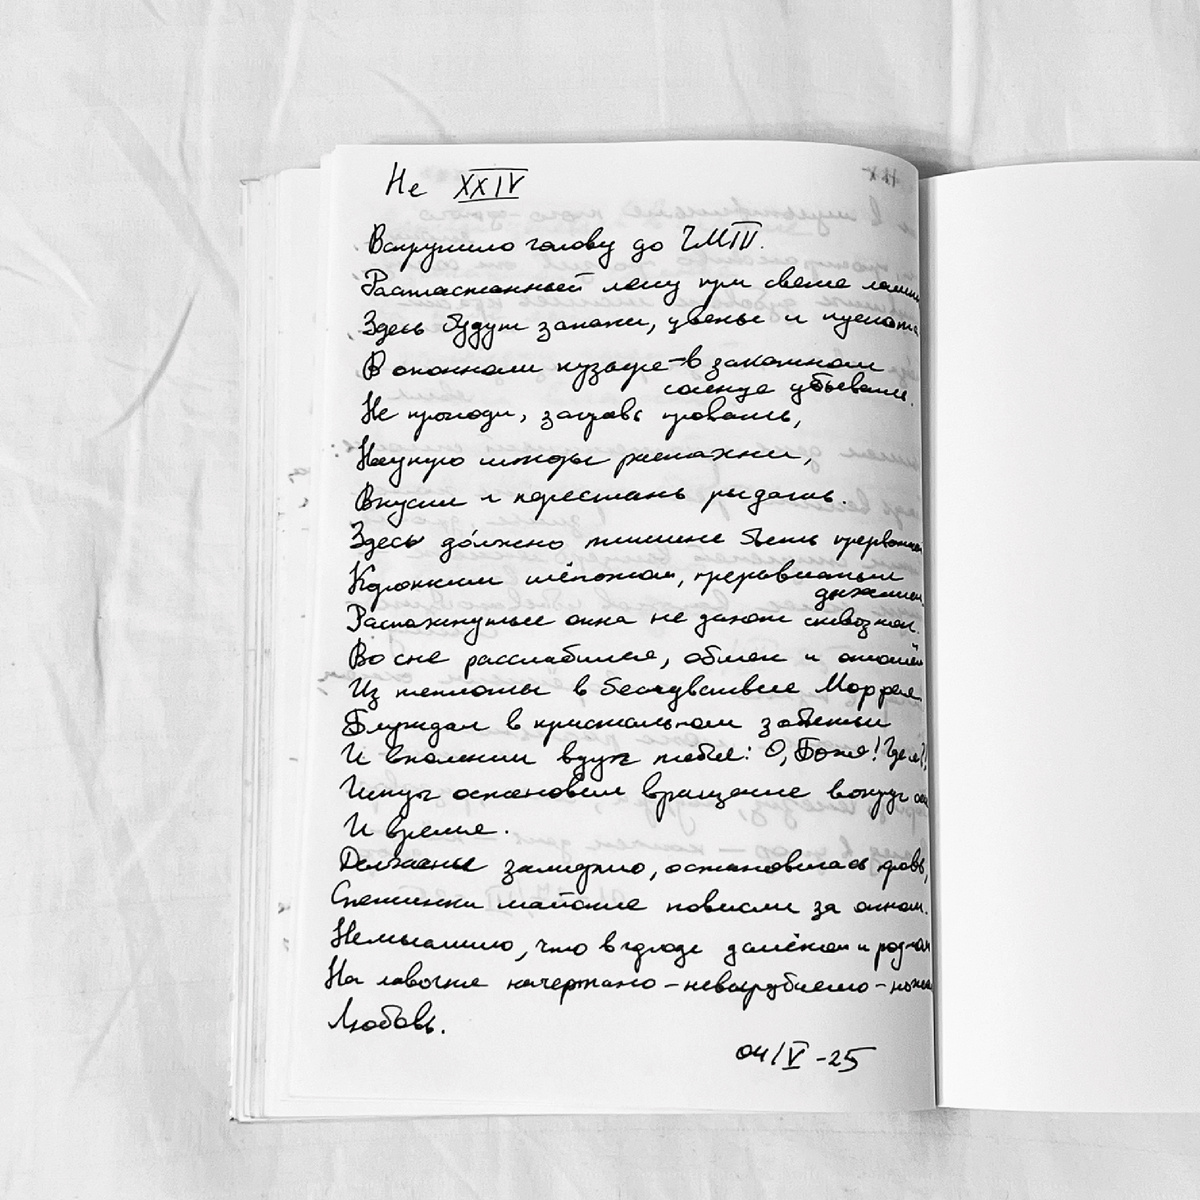 Не XXIV
Вскружило голову до ЧМТ IV.
Распластанный лежу при свете лампы
Здесь будут запахи, цветы и пустота
В оконном кузыре – в закатном
солнце убывает.
Не проходи, заправь кровать,
Наружу шторы распахни,
Вкуси и перестань рыдать.
Здесь до́лжно тишине быть прерванной
Коротким шёпотом, прерывистым
дыханием.
Распахнутые окна не дают сквозной.
Во сне расслабился, обмяк и
Из теплоты в бесчувствиеМорфея
Блуждал в кристальном забытьи
И вспомнил вдруг тебя: О, Боже! Где я?!
Испуг остановил вращение вокруг оси
И время.
Дыханье замерло, остановилась кровь,
Снежинки майские повисли за окном.
Немыслимо, что в городе далёком и родном
На лавочке начертано – невырубаемо – ножом
Любовь.
04/V -25